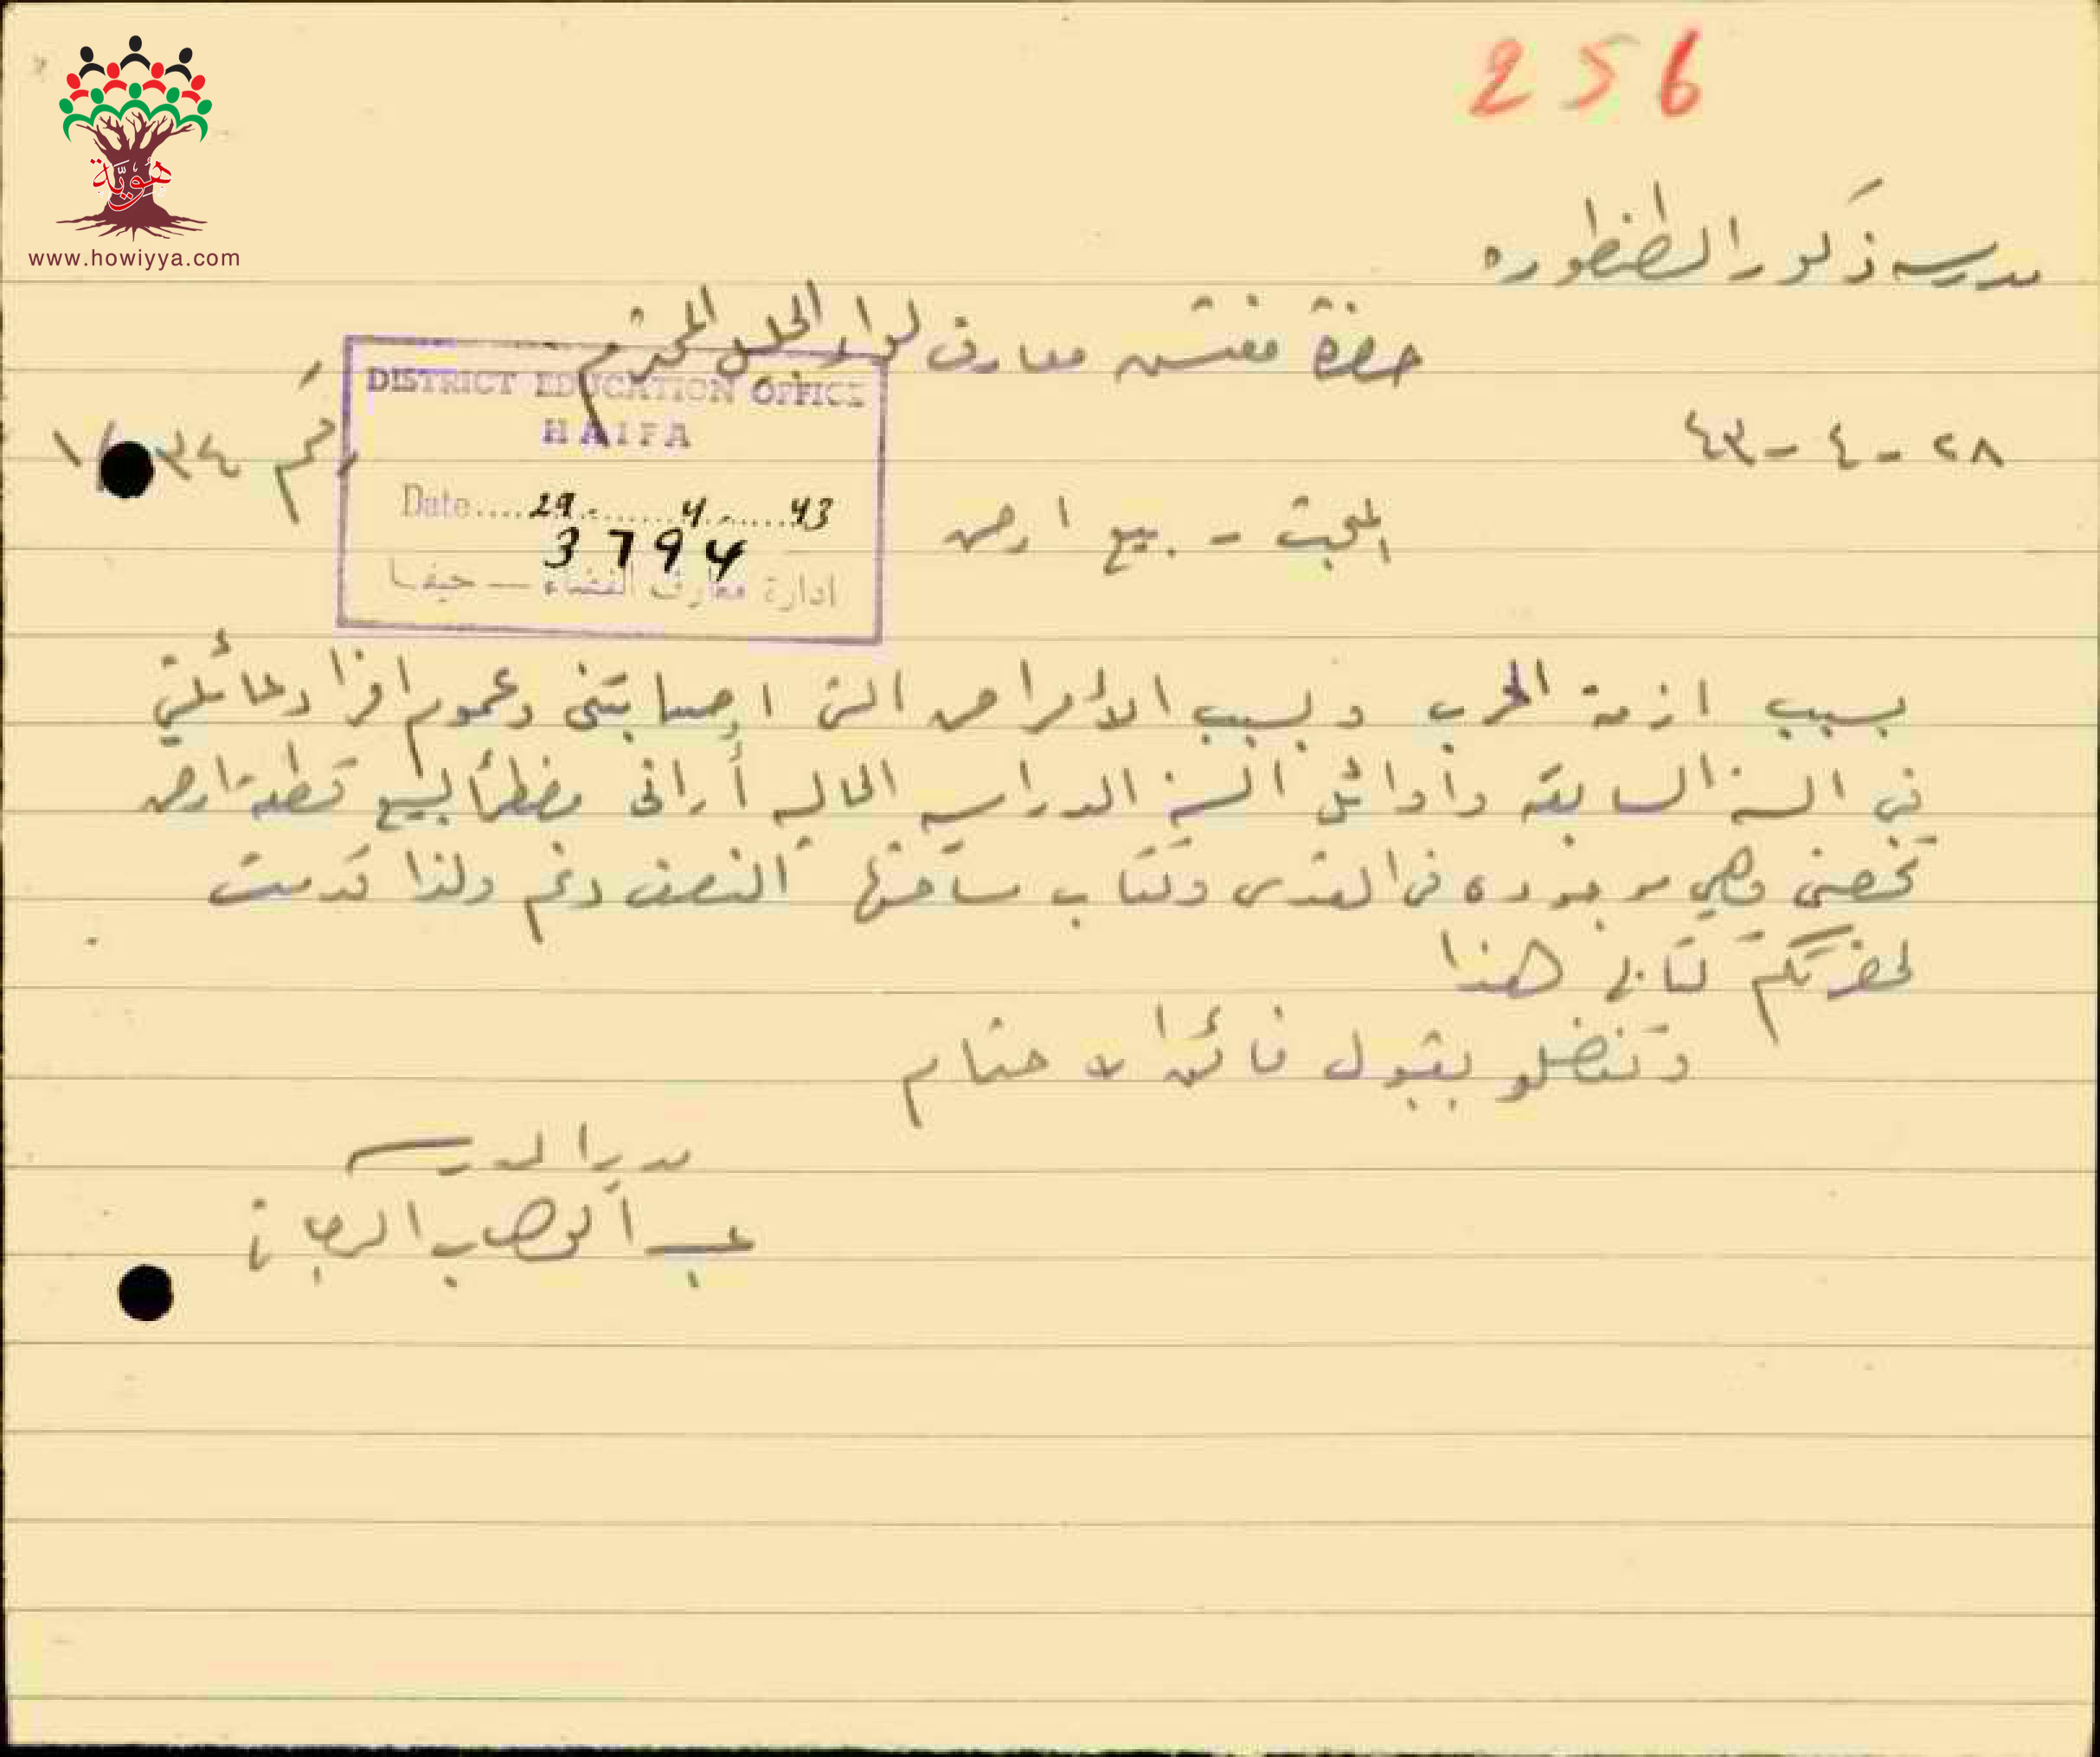 256
هُويَّة
www.howiyya.com
مدرسة ذكور الطنطوره
حضرة مفتش معارف لواء الجليل المحترم
٢٨ - ٤ - ٤٣
رقم ٣٤ /١
DISTRICT EDUCATION OFFICE
HAIFA
Date.... 29 ... 4 ... 43
3794
ادارة معارف القضاء — حيفا
المبحث - بيع ارض
بسبب ازمة الحرب وبسبب الأمراض التي اصابتني وعموم افراد عائلتي
في السنة السابقة وأوائل السنة الدراسية الحالية أراني مضطراً لبيع قطعة ارض
تخصني وهي موجوده في القدس وكتاب مساحتها النصف دنم ولذا قدمت
لحضرتكم كتابي هذا
وتفضلو بقبول فائق الاحترام
مدير المدرسة
عبد الوهاب الرجاني